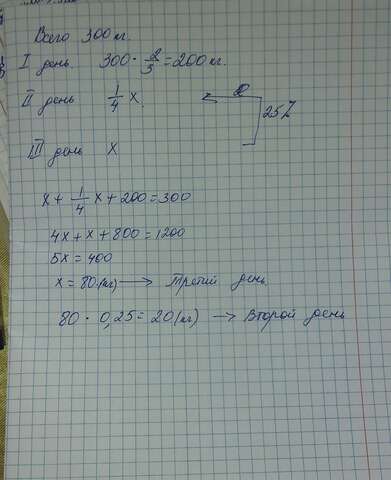 Всего 300 кг.
I день 300 · 2/3 = 200 кг.
II день 1/4 x
25%
III день x
x + 1/4 x + 200 = 300
4x + x + 800 = 1200
5x = 400
x = 80 (кг) → третий день
80 · 0,25 = 20 (кг) → второй день